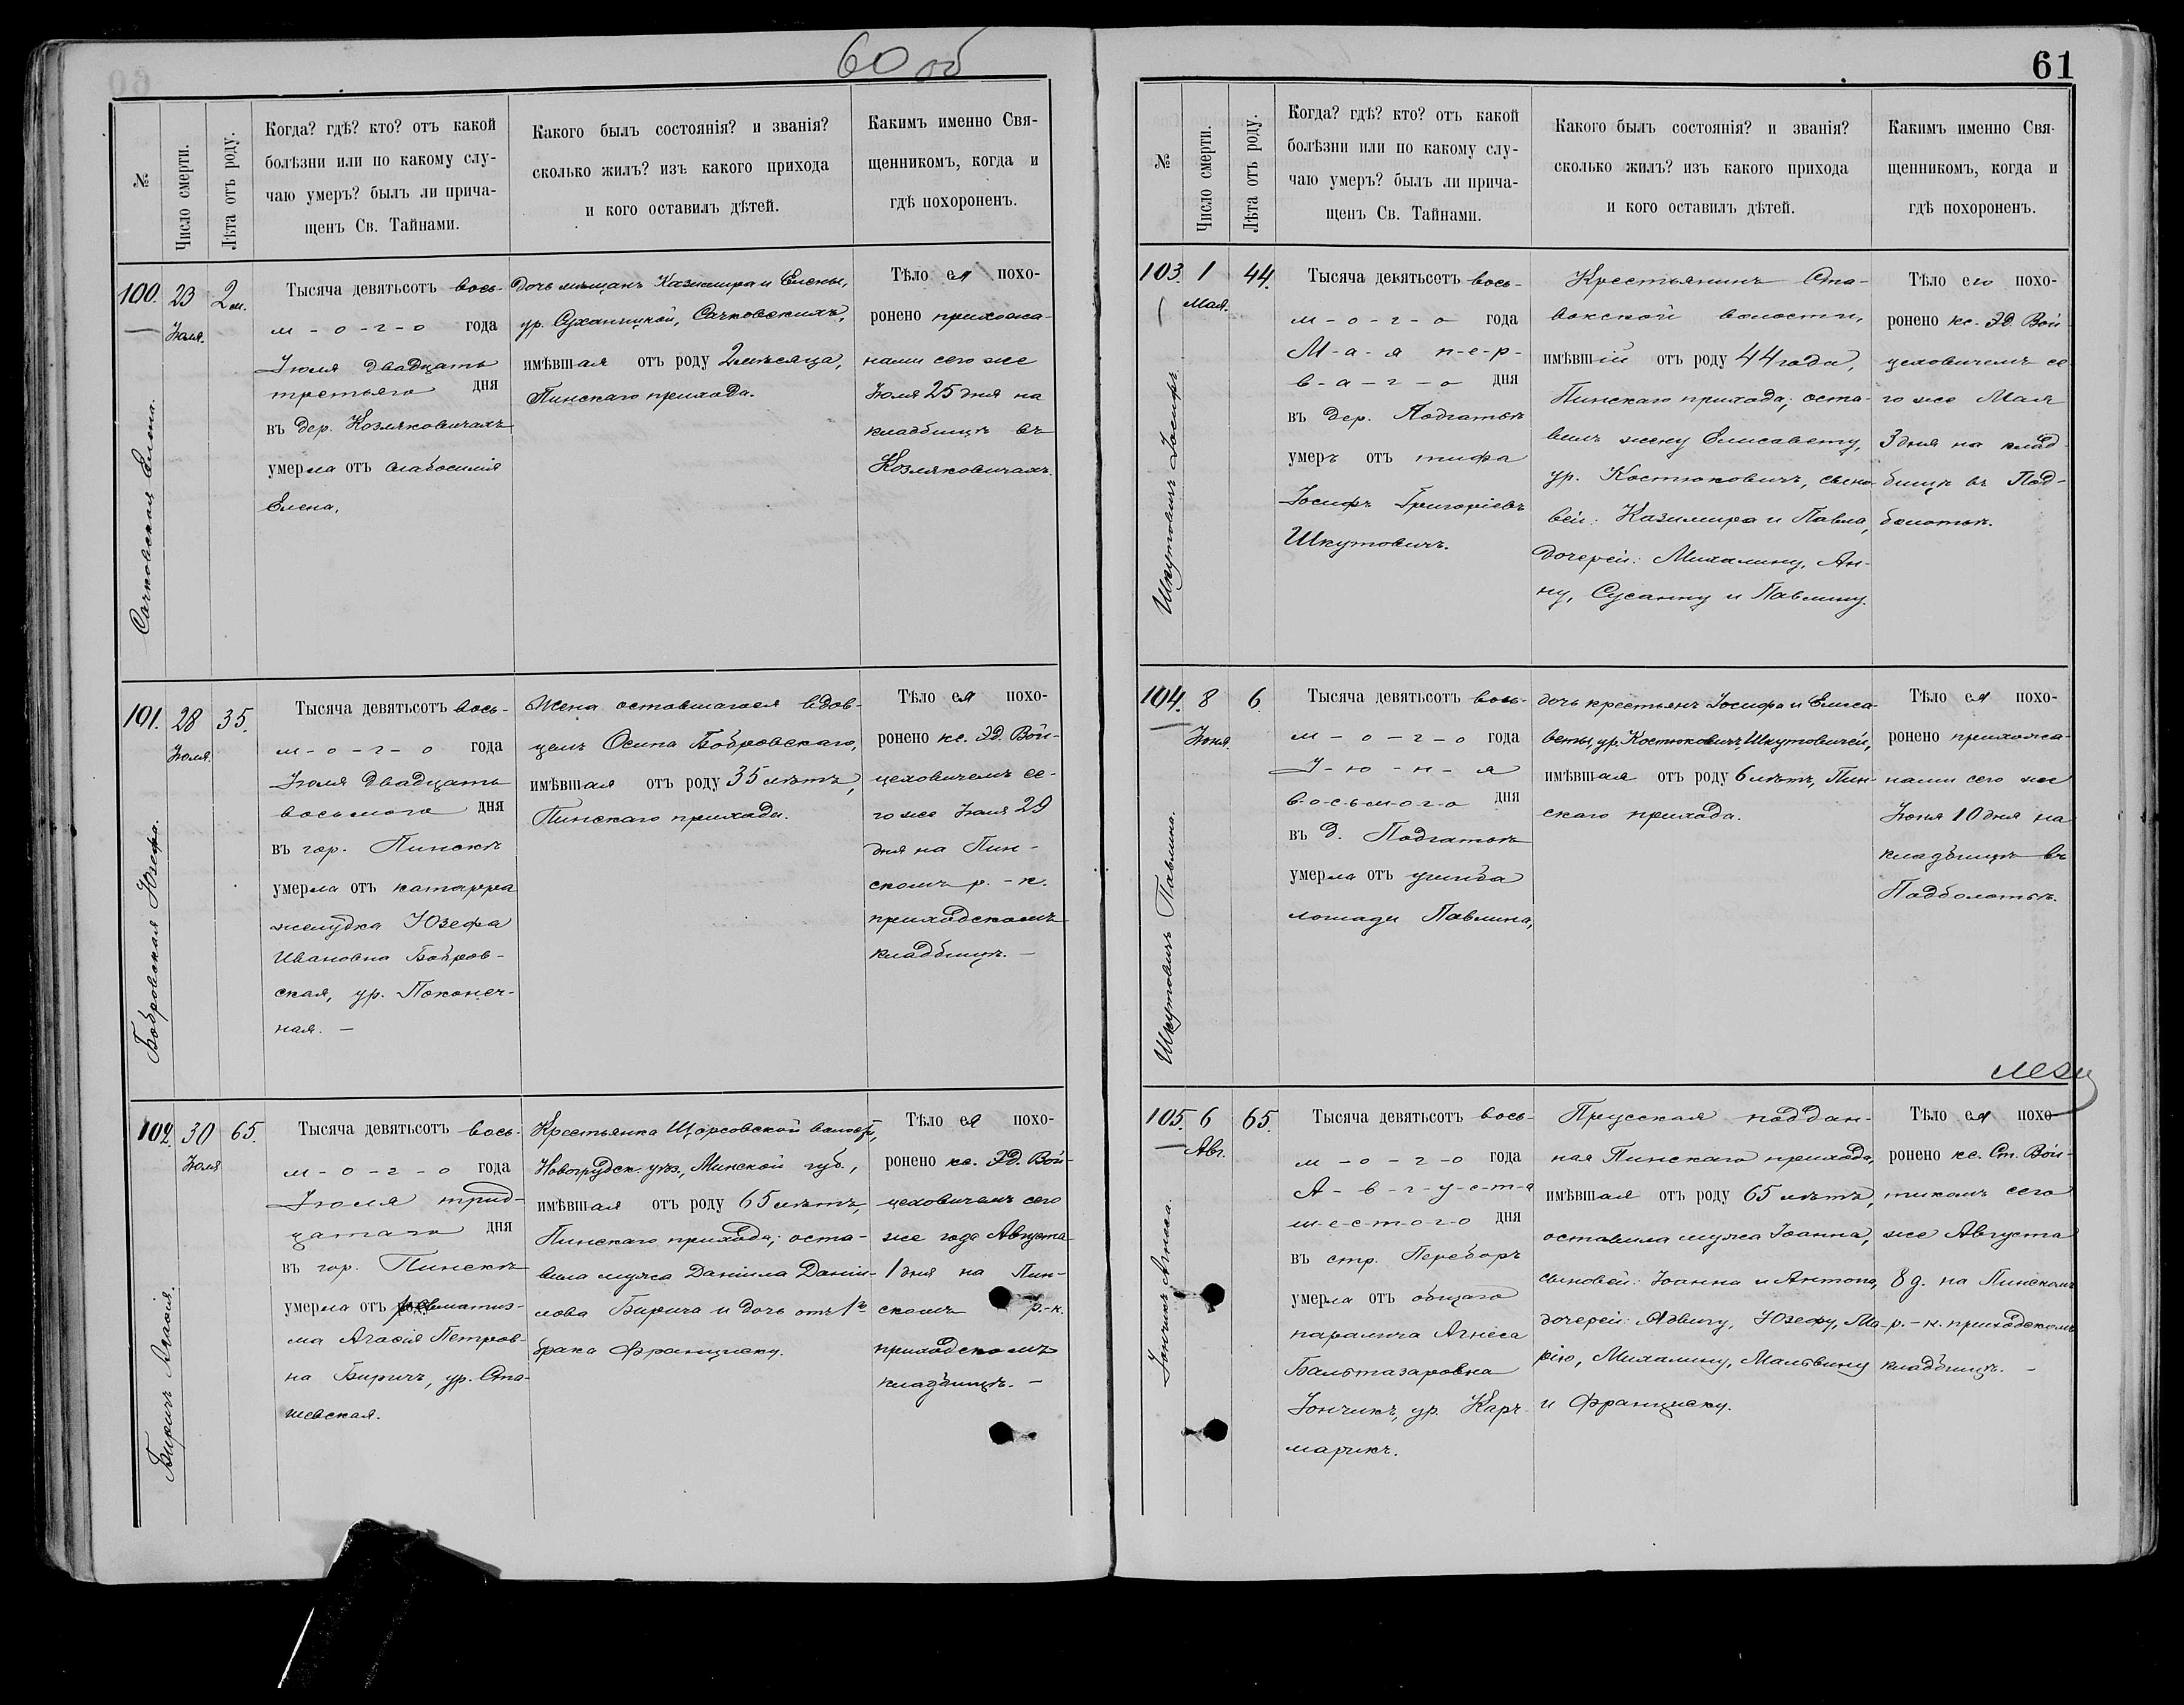 60 об
№
Число смерти.
Лѣта отъ роду.
Когда? гдѣ? кто? отъ какой
болѣзни или по какому слу-
чаю умеръ? былъ ли прича-
щенъ Св. Тайнами.
Какого былъ состоянія? и званія?
сколько жилъ? изъ какого прихода
и кого оставилъ дѣтей.
Какимъ именно Свя-
щенникомъ, когда и
гдѣ похороненъ.
100.
Сачковская Елена.
23
Іюля.
2 м.
Тысяча девятьсотъ вось-
м-о-г-о года
Іюля двадцать
третьяго дня
въ дер. Козляковичахъ
умерла отъ слабосилія
Елена,
дочь мѣщанъ Казимира и Елены,
ур. Суханицкой, Сачковскихъ,
имѣвшая отъ роду 2 мѣсяца,
Пинскаго прихода.
Тѣло ея похо-
ронено прихожа-
нами сего же
Іюля 25 дня на
кладбищѣ въ
Козляковичахъ.
101.
Бобровская Юзефа.
28
Іюля.
35.
Тысяча девятьсотъ вось-
м-о-г-о года
Іюля двадцать
восьмого дня
въ гор. Пинскѣ
умерла отъ катарра
желудка Юзефа
Ивановна Бобров-
ская, ур. Поконеч-
ная. —
Жена оставшагося вдов-
цемъ Осипа Бобровскаго,
имѣвшая отъ роду 35 лѣтъ,
Пинскаго прихода.
Тѣло ея похо-
ронено кс. Эд. Вой-
цеховичемъ се-
го же Іюля 29
дня на Пин-
скомъ р.-к.
приходскомъ
кладбищѣ. —
102.
Биричъ Агасія.
30
Іюля
65.
Тысяча девятьсотъ вось-
м-о-г-о года
Іюля трид-
цатаго дня
въ гор. Пинскѣ
умерла отъ ревматиз-
ма Агасія Петров-
на Биричъ, ур. Ста-
шевская.
Крестьянка Щорсовской волости,
Новогрудск. уѣз., Минской губ.,
имѣвшая отъ роду 65 лѣтъ,
Пинскаго прихода; оста-
вила мужа Даніила Даніи-
лова Бирича и дочь отъ 1го
брака Франциску.
Тѣло ея похо-
ронено кс. Эд. Вой-
цеховичемъ сего
же года Августа
1 дня на Пин-
скомъ р.-к.
приходскомъ
кладбищѣ. —
61
№
Число смерти.
Лѣта отъ роду.
Когда? гдѣ? кто? отъ какой
болѣзни или по какому слу-
чаю умеръ? былъ ли прича-
щенъ Св. Тайнами.
Какого былъ состоянія? и званія?
сколько жилъ? изъ какого прихода
и кого оставилъ дѣтей.
Какимъ именно Свя-
щенникомъ, когда и
гдѣ похороненъ.
103.
Шкутовичъ Іосифъ.
1
Мая.
44.
Тысяча девятьсотъ вось-
м-о-г-о года
М-а-я п-е-р-
в-а-г-о дня
въ дер. Подгатьѣ
умеръ отъ тифа
Іосифъ Григоріевъ
Шкутовичъ.
Крестьянинъ Ста-
вокской волости,
имѣвшій отъ роду 44 года,
Пинскаго прихода; оста-
вилъ жену Елисавету,
ур. Костюковичъ, сыно-
вей: Казимира и Павла,
дочерей: Михалину, Ан-
ну, Сусанну и Павлину.
Тѣло его похо-
ронено кс. Эд. Вой-
цеховичемъ се-
го же Мая
3 дня на клад-
бищѣ въ Под-
болотьѣ.
104.
Шкутовичъ Павлина.
8
Іюня.
6.
Тысяча девятьсотъ вось-
м-о-г-о года
І-ю-н-я
в-о-с-ь-м-о-г-о дня
въ д. Подгатьѣ
умерла отъ ушиба
лошади Павлина,
дочь крестьянъ Іосифа и Елиса-
веты, ур. Костюковичъ Шкутовичей,
имѣвшая отъ роду 6 лѣтъ, Пин-
скаго прихода.
Тѣло ея похо-
ронено прихожа-
нами сего же
Іюня 10 дня на
кладбищѣ въ
Подболотьѣ.
105.
Іончикъ Агнеса.
6
Авг.
65.
Тысяча девятьсотъ вось-
м-о-г-о года
А-в-г-у-с-т-а
ш-е-с-т-о-г-о дня
въ стр. Переборъ
умерла отъ общаго
паралича Агнеса
Бальтазаровна
Іончикъ, ур. Карч-
марикъ.
Прусская поддан-
ная Пинскаго прихода,
имѣвшая отъ роду 65 лѣтъ,
оставила мужа Іоанна,
сыновей: Іоанна и Антона,
дочерей: Ядвигу, Юзефу, Ма-
рію, Михалину, Мальвину
и Франциску.
Тѣло ея похо-
ронено кс. Ст. Вой-
тикомъ сего
же Августа
8 д. на Пинскомъ
р.-к. приходскомъ
кладбищѣ. —